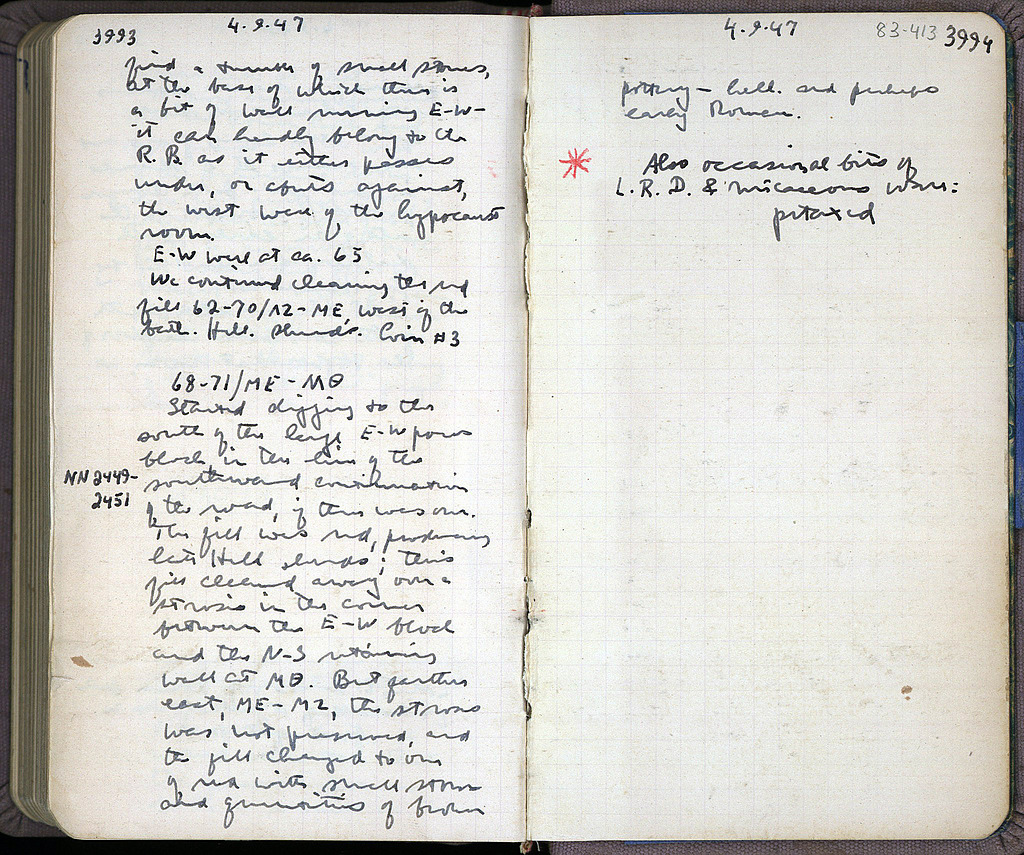 3993
4.9.47
find a tumble of small stones,
at the base of which there is
a bit of wall running E-W-
it can hardly belong to the
R.B. as it either passes
under, or abuts against,
the west wall of the hypocaust
room.
E-W wall at ca. 65
We continued cleaning the red
fill 62-70/ΛΖ-ΜΕ, west of the
bath. Hell. sherds. Coin #3
68-71/ΜΕ-ΜΘ
Started digging to the
south of the large E-W poros
block in the line of the
NN 2449-
2451
southward continuation
of the road, if there was one.
The fill was red, producing
late Hell sherds; this
fill cleaned away over a
strosis in the corner
between the E-W block
and the N-S retaining
wall at ΜΘ. But farther
east, ΜΕ-ΜΖ, the strosis
was not preserved, and
the fill changed to one
of red with small stones
and quantities of broken
4.9.47
83-413
3994
pottery - hell. and perhaps
early Roman.
Also occasional bits of
L.R.D. & micaceous ware:
pitaxed